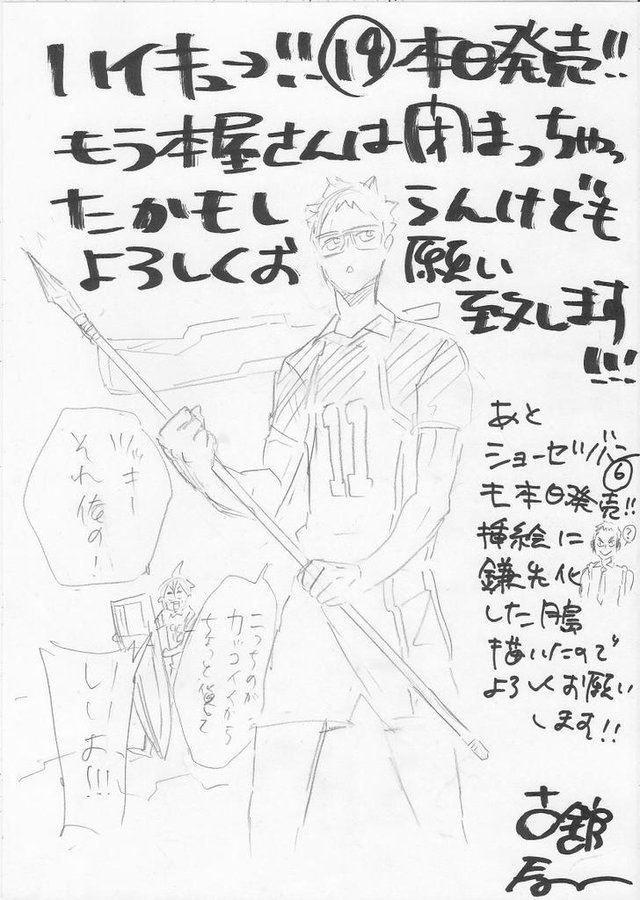 ハイキュー!! ⑭ 本日発売!!
もう本屋さんは閉まっちゃっ
たかもしらんけども
よろしくお願い
致します
!!!
あと
ショーセツバン
⑥
も本日発売!!
挿絵に
鎌先化
した月島
描いたので
よろしくお願い
します!!
?
11
ツッキー
それ俺の!
こっちのが
カッコイイから
ちょっと貸して
しいよ!!!
古舘